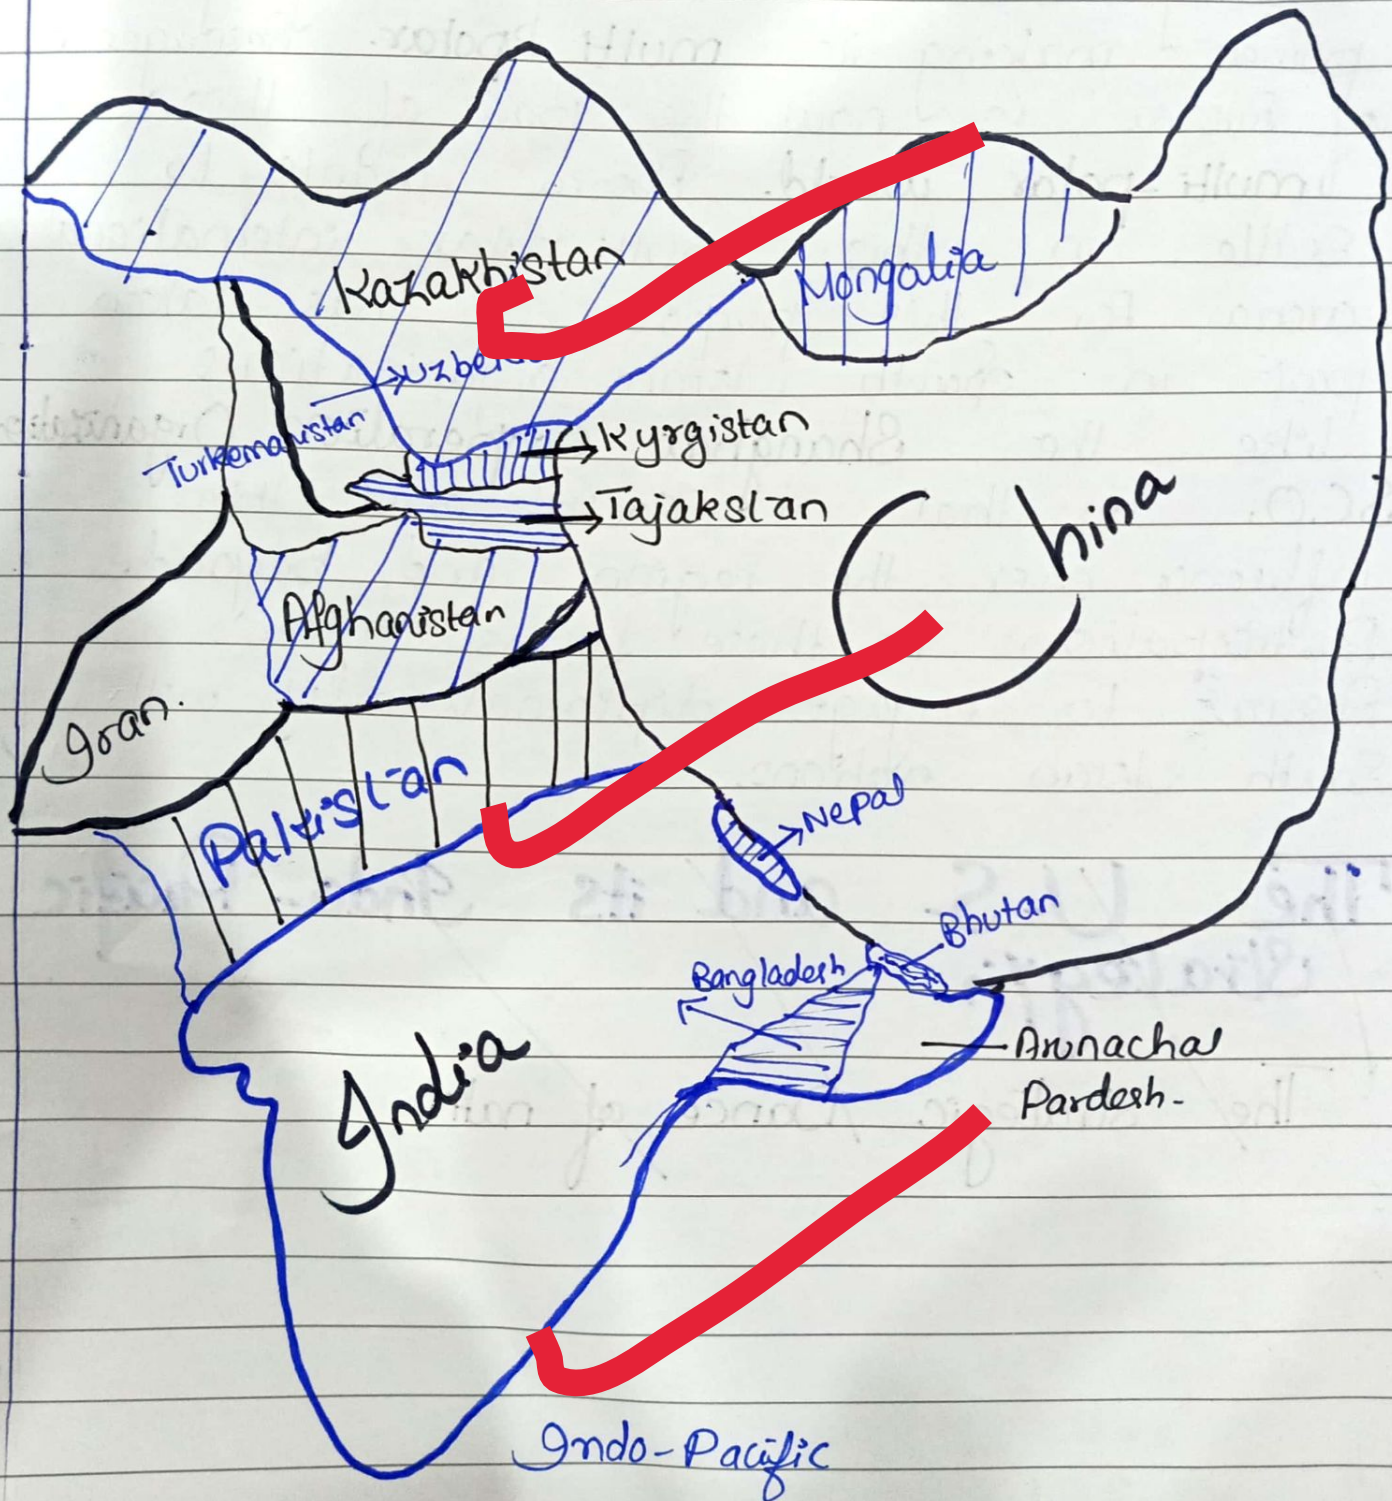 Kazakhistan
Mongalia
Uzbek
Turkemanistan
Kyrgistan
Tajakstan
China
Afghanistan
Iran.
Pakistan
Nepal
Bhutan
Bangladesh
India
Arunachal
Pardesh-
Indo-Pacific